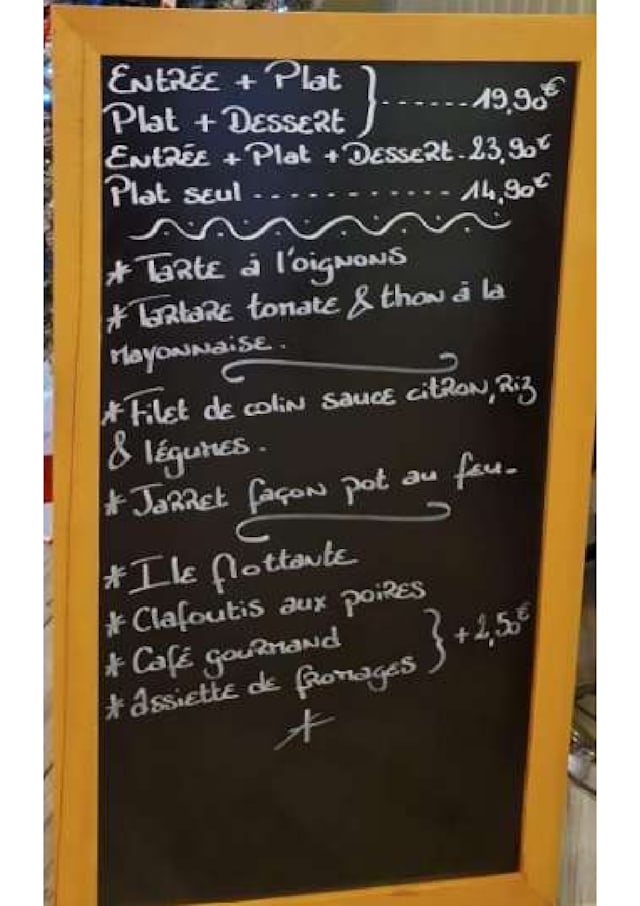 Entrée + Plat
Plat + Dessert } ...... 19,90€
Entrée + Plat + Dessert. 23,90€
Plat seul ............ 14,90€
* Tarte à l'oignons
* Tartare tomate & thon à la
mayonnaise.
* Filet de colin sauce citron, Riz
& légumes.
* Jarret façon pot au feu.
* Ile flottante
* Clafoutis aux poires
* Café gourmand
* Assiette de fromages } + 2,50€
*